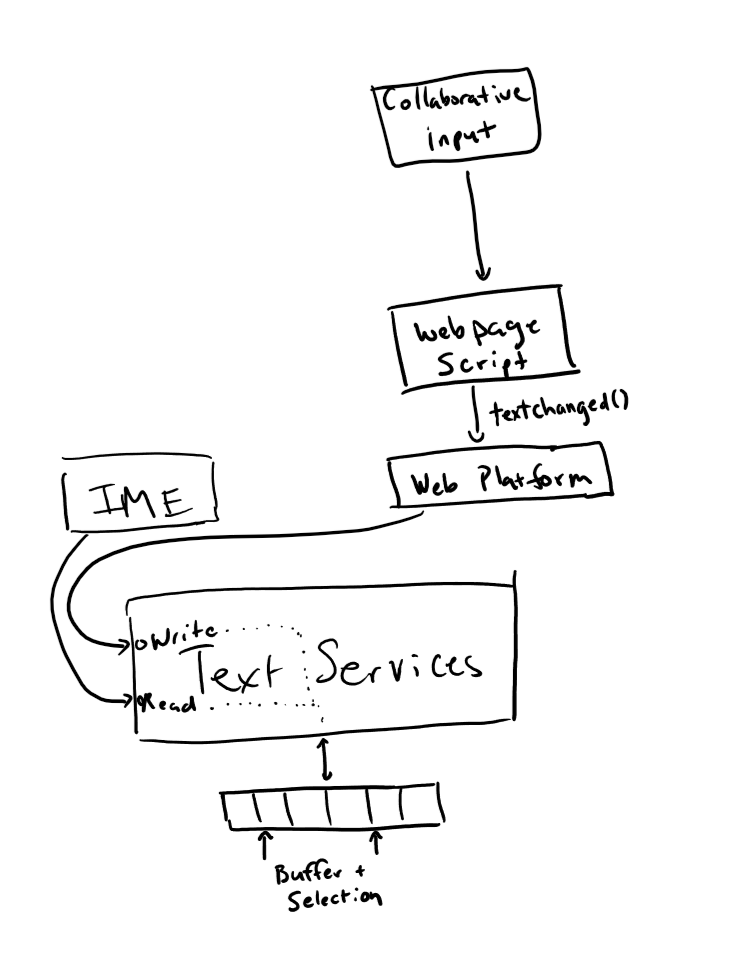 Collaborative
input
Webpage
Script
textchanged()
IME
Web Platform
Write
Text Services
Read
Buffer +
Selection